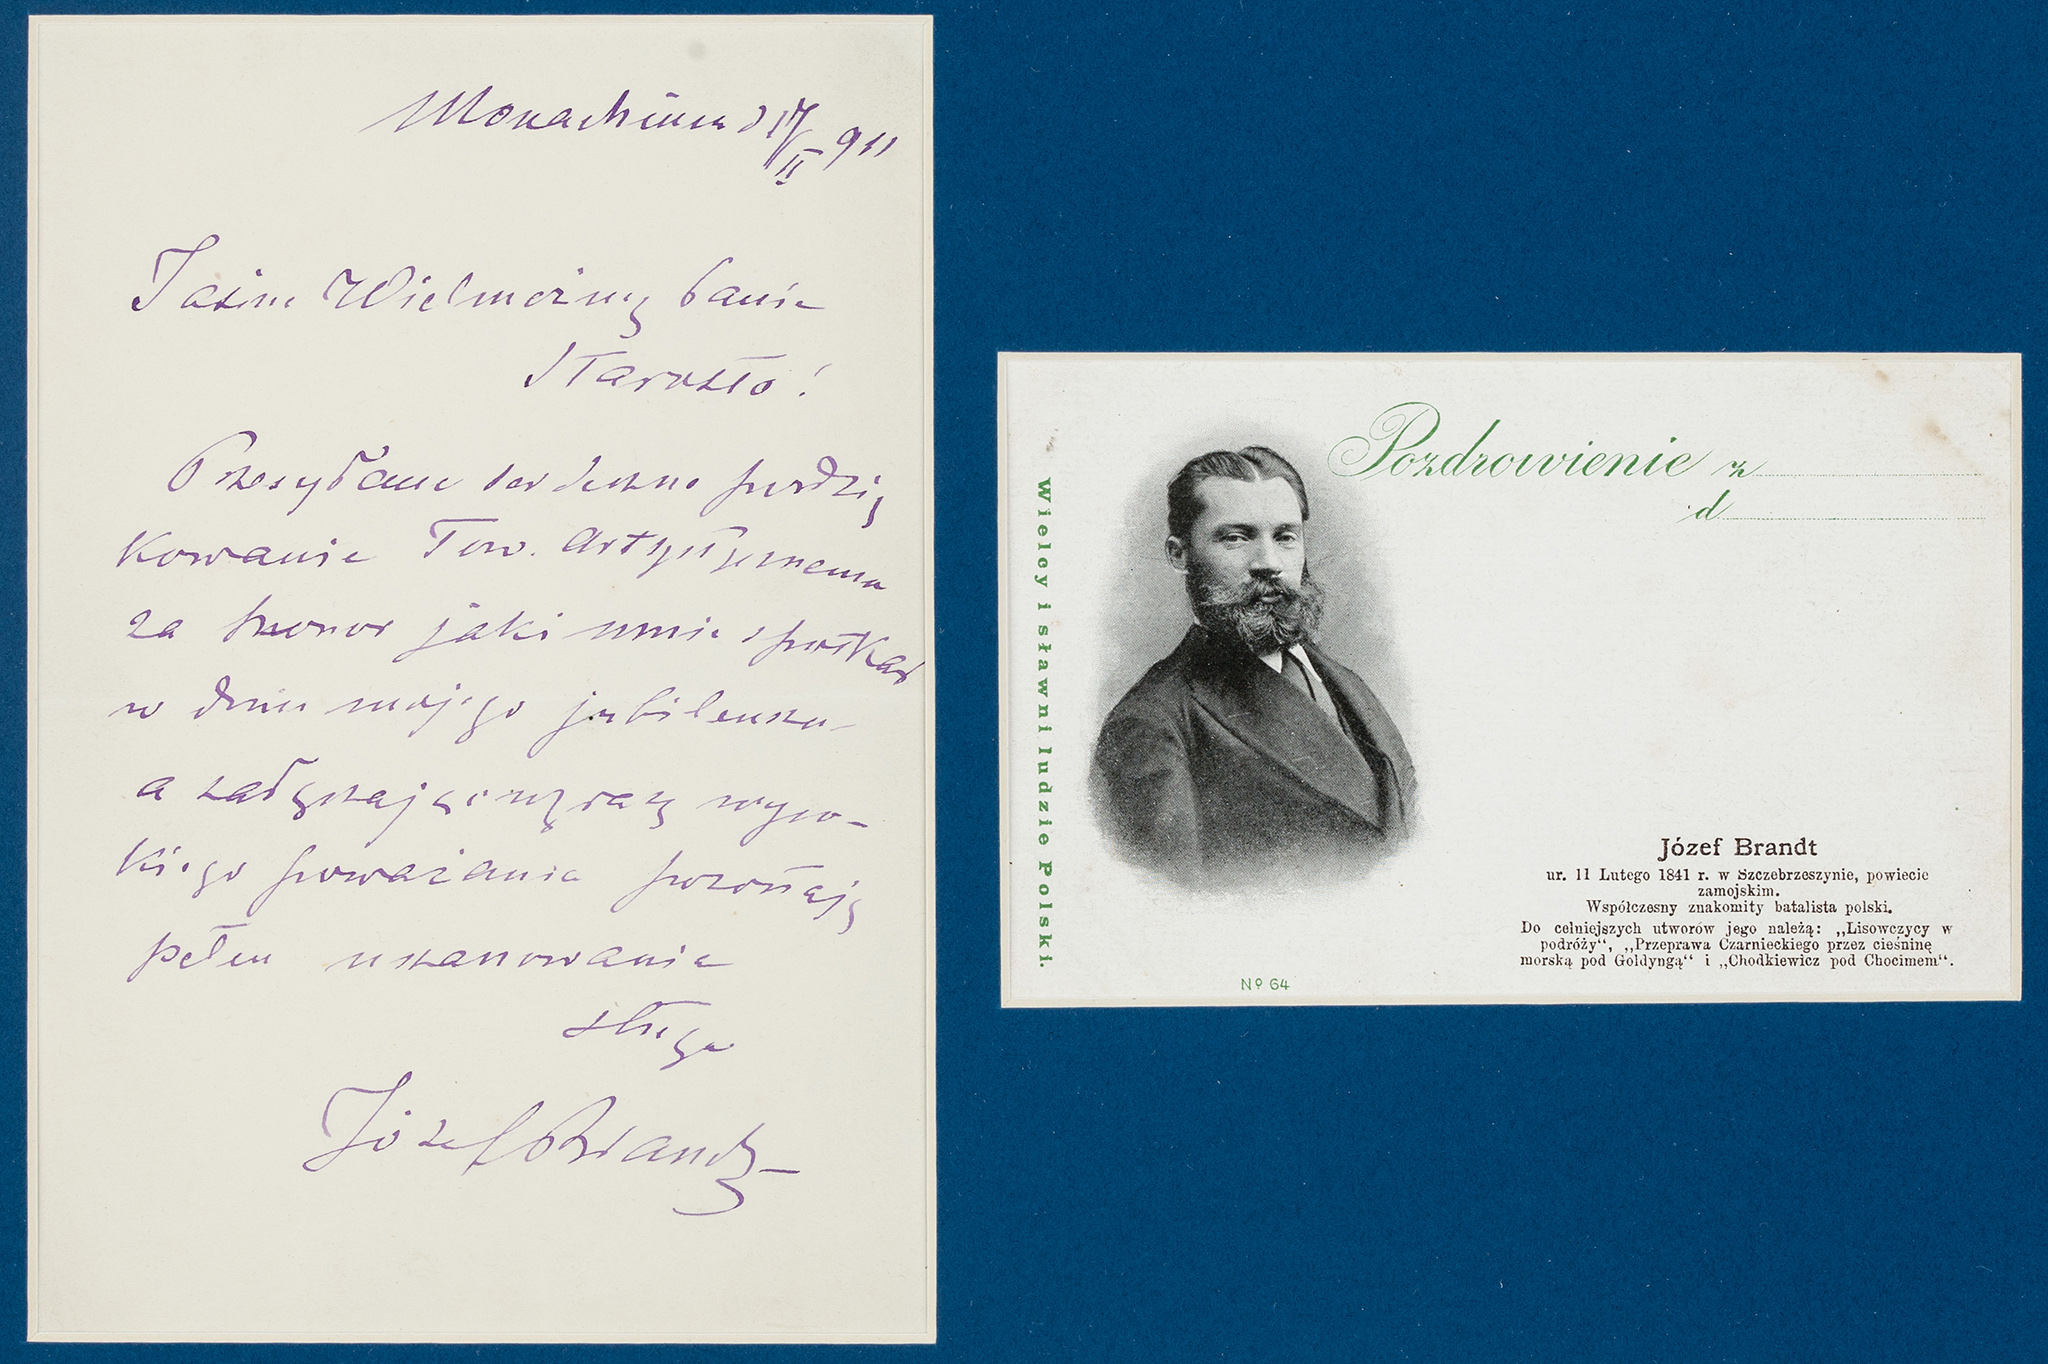 Monachium d 17/II 911
Jaśnie Wielmożny Panie
Starosto!
Przesyłam serdeczne podzię
kowanie Tow. Artystycznemu
za honor jaki mnie spotkał
w dniu mojego jubileuszu
a załączając wyrazy wyso-
kiego poważania pozostaję
pełen uszanowania
sługa
Józef Brandt
Pozdrowienie z
d
Wielcy i sławni ludzie Polski.
Józef Brandt
ur. 11 Lutego 1841 r. w Szczebrzeszynie, powiecie
zamojskim.
Współczesny znakomity batalista polski.
Do celniejszych utworów jego należą: „Lisowczycy w
podróży“, „Przeprawa Czarnieckiego przez cieśninę
morską pod Goldyngą“ i „Chodkiewicz pod Chocimem“.
Nº 64